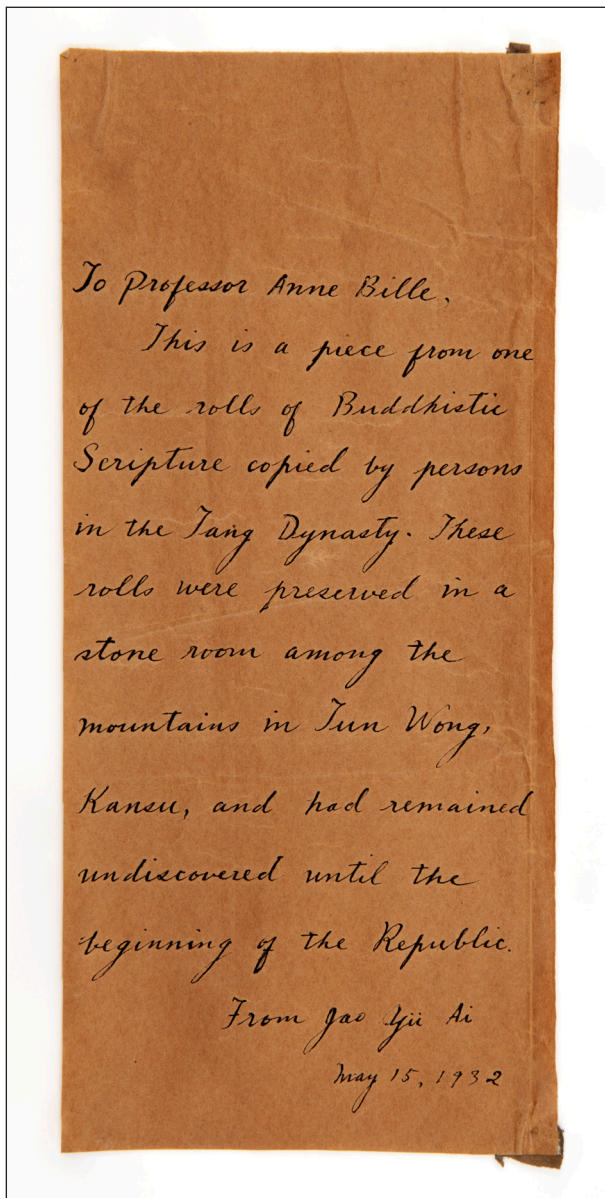 To Professor Anne Bille,
This is a piece from one
of the rolls of Buddhistic
Scripture copied by persons
in the Tang Dynasty. These
rolls were preserved in a
stone room among the
mountains in Tun Wong,
Kansu, and had remained
undiscovered until the
beginning of the Republic.
From Jao Yü Ai
May 15, 1932